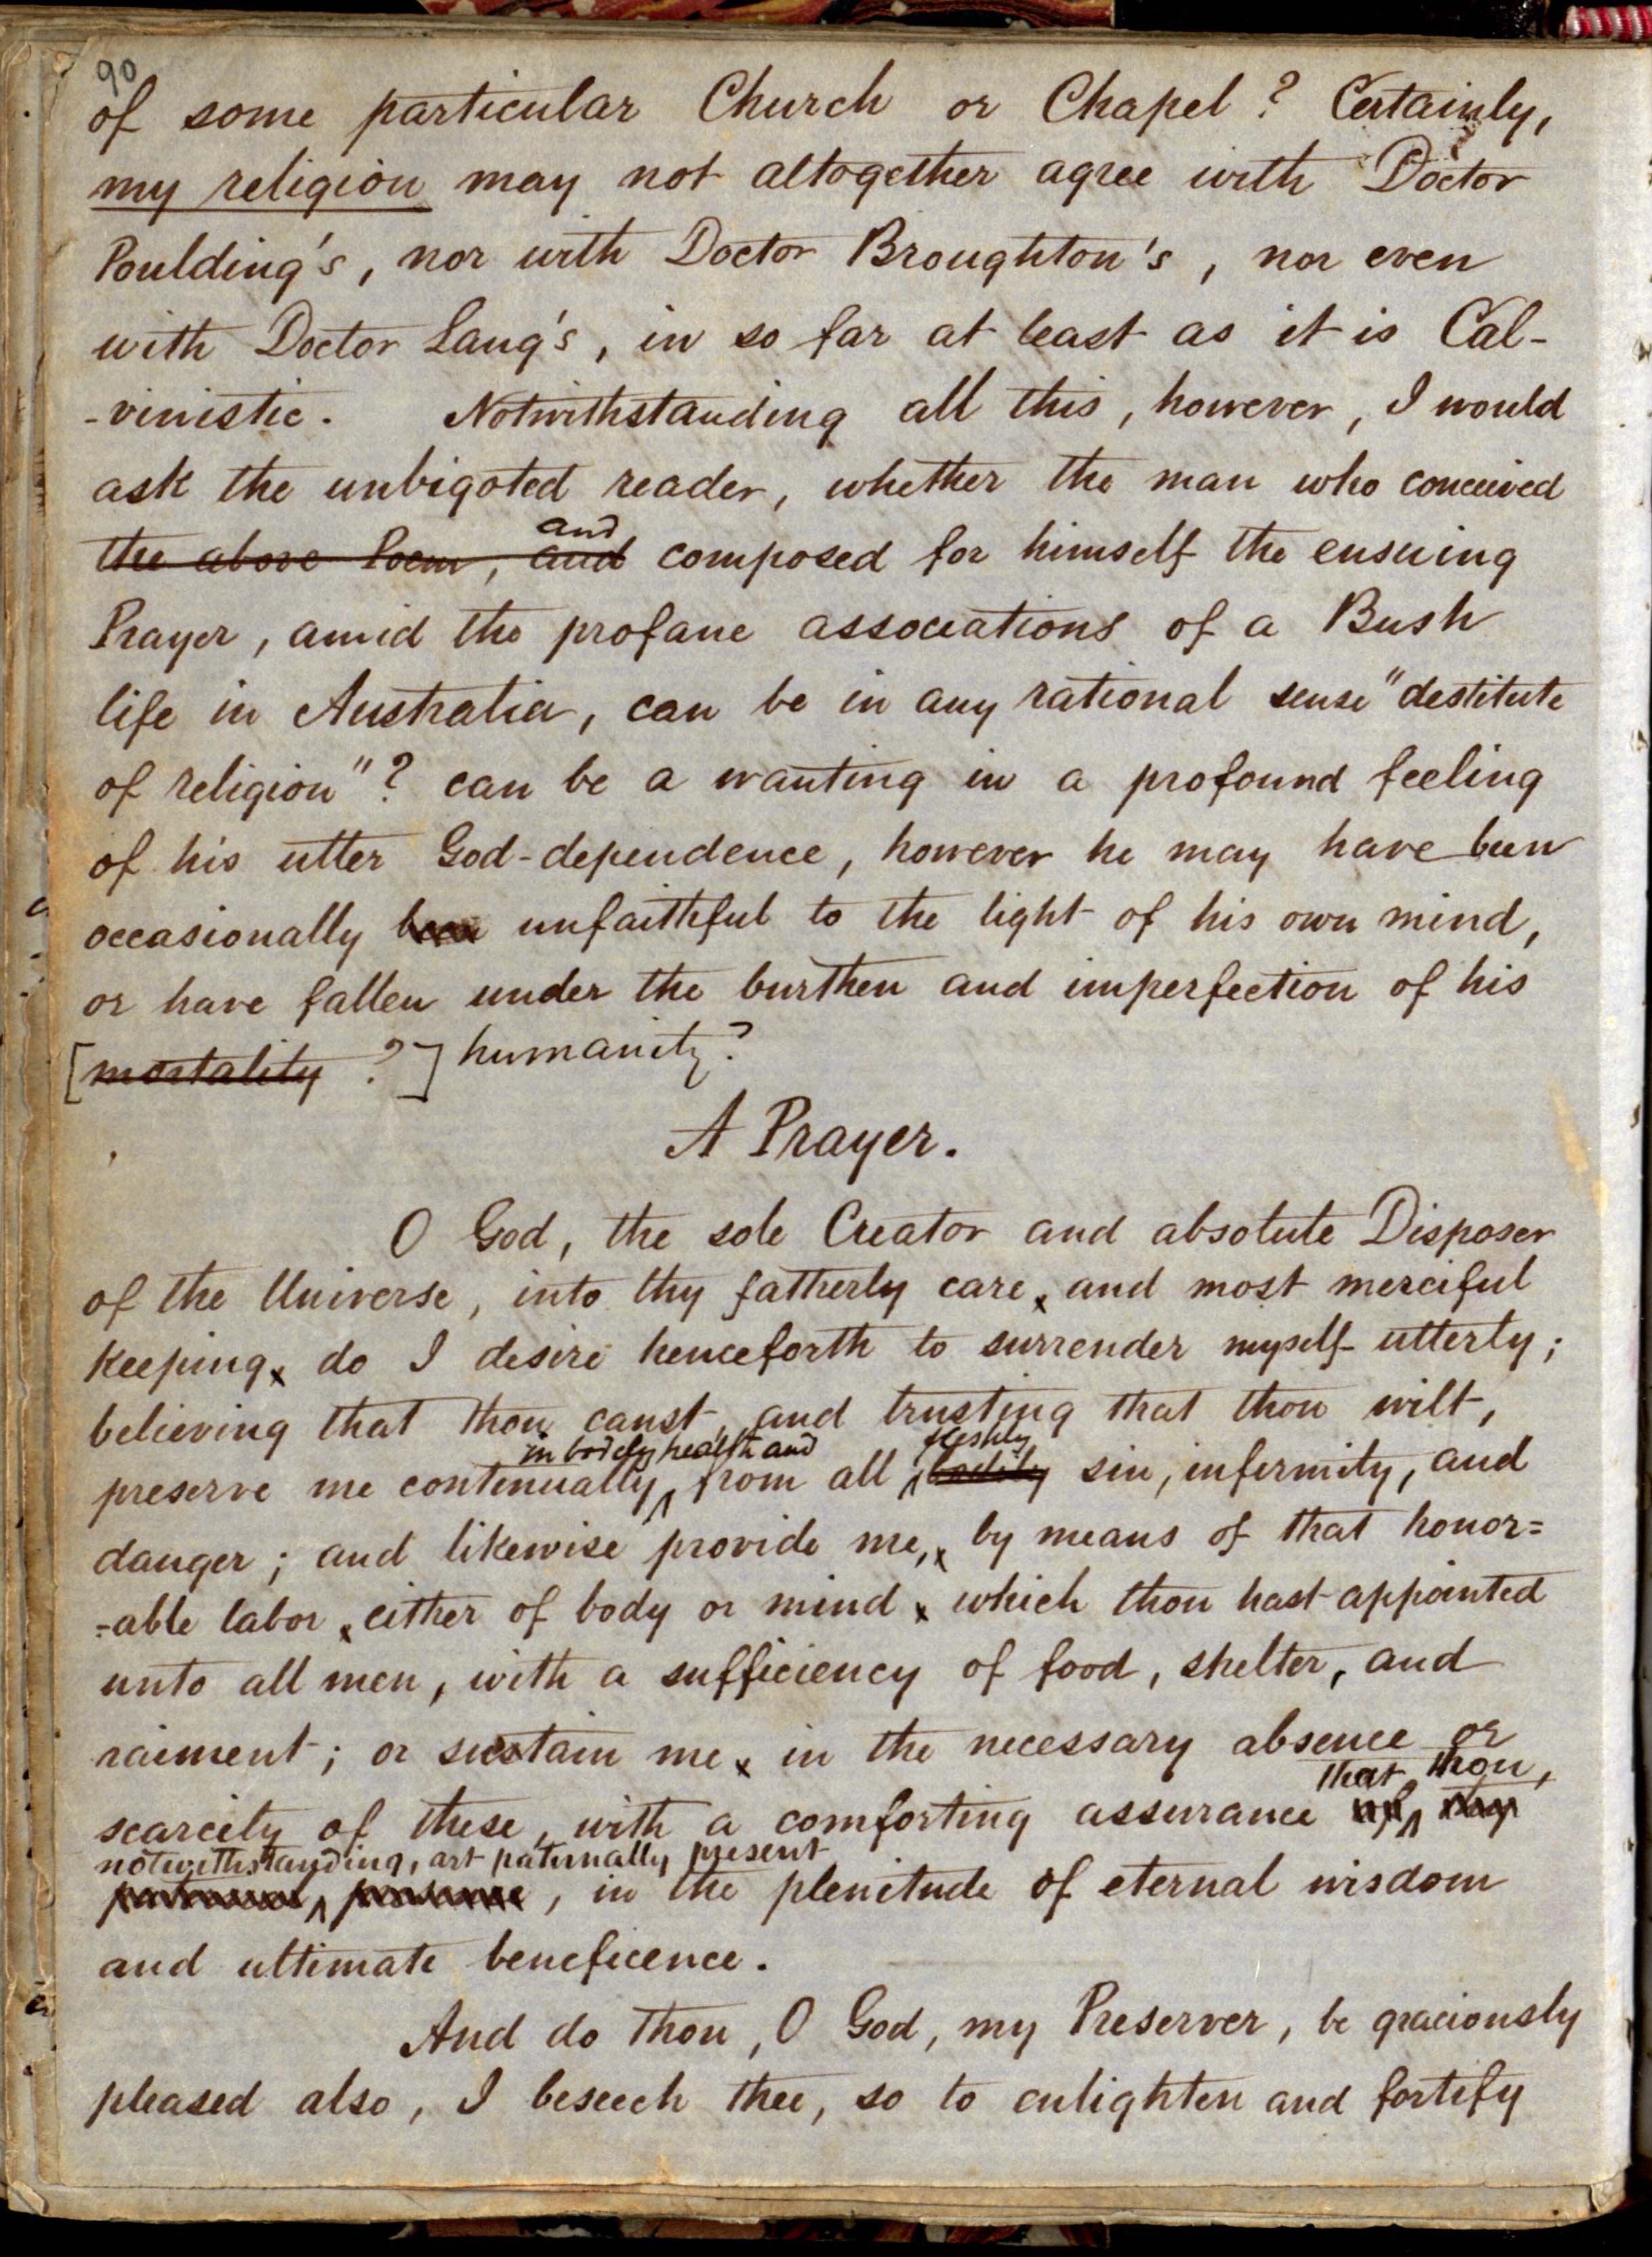 90
of some particular Church or Chapel? Certainly,
my religion may not altogether agree with Doctor
Poulding's, nor with Doctor Broughton's, nor even
with Doctor Lang's, in so far at least as it is Cal-
-vinistic. Notwithstanding all this, however, I would
ask the unbigoted reader, whether the man who conceived
and
the above Poem, and composed for himself the ensuing
Prayer, amid the profane associations of a Bush
life in Australia, can be in any rational sense "destitute
of religion"? can be a wanting in a profound feeling
of his utter God-dependence, however he may have been
occasionally been unfaithful to the light of his own mind,
or have fallen under the burthen and imperfection of his
[mortality ?] humanity?
A Prayer.
O God, the sole Creator and absolute Disposer
of the Universe, into thy fatherly care, and most merciful
keeping, do I desire henceforth to surrender myself utterly;
believing that thou canst, and trusting that thou wilt,
in bodily health and fleshly
preserve me continually, from all bodily sin, infirmity, and
danger; and likewise provide me, by means of that honor=
=able labor, either of body or mind, which thou hast appointed
unto all men, with a sufficiency of food, shelter, and
raiment; or sustain me, in the necessary absence or
that thou,
scarcity of these, with a comforting assurance of thy
notwithstanding, art paternally present
, in the plenitude of eternal wisdom
and ultimate beneficence.
And do thou, O God, my Preserver, be graciously
pleased also, I beseech thee, so to enlighten and fortify